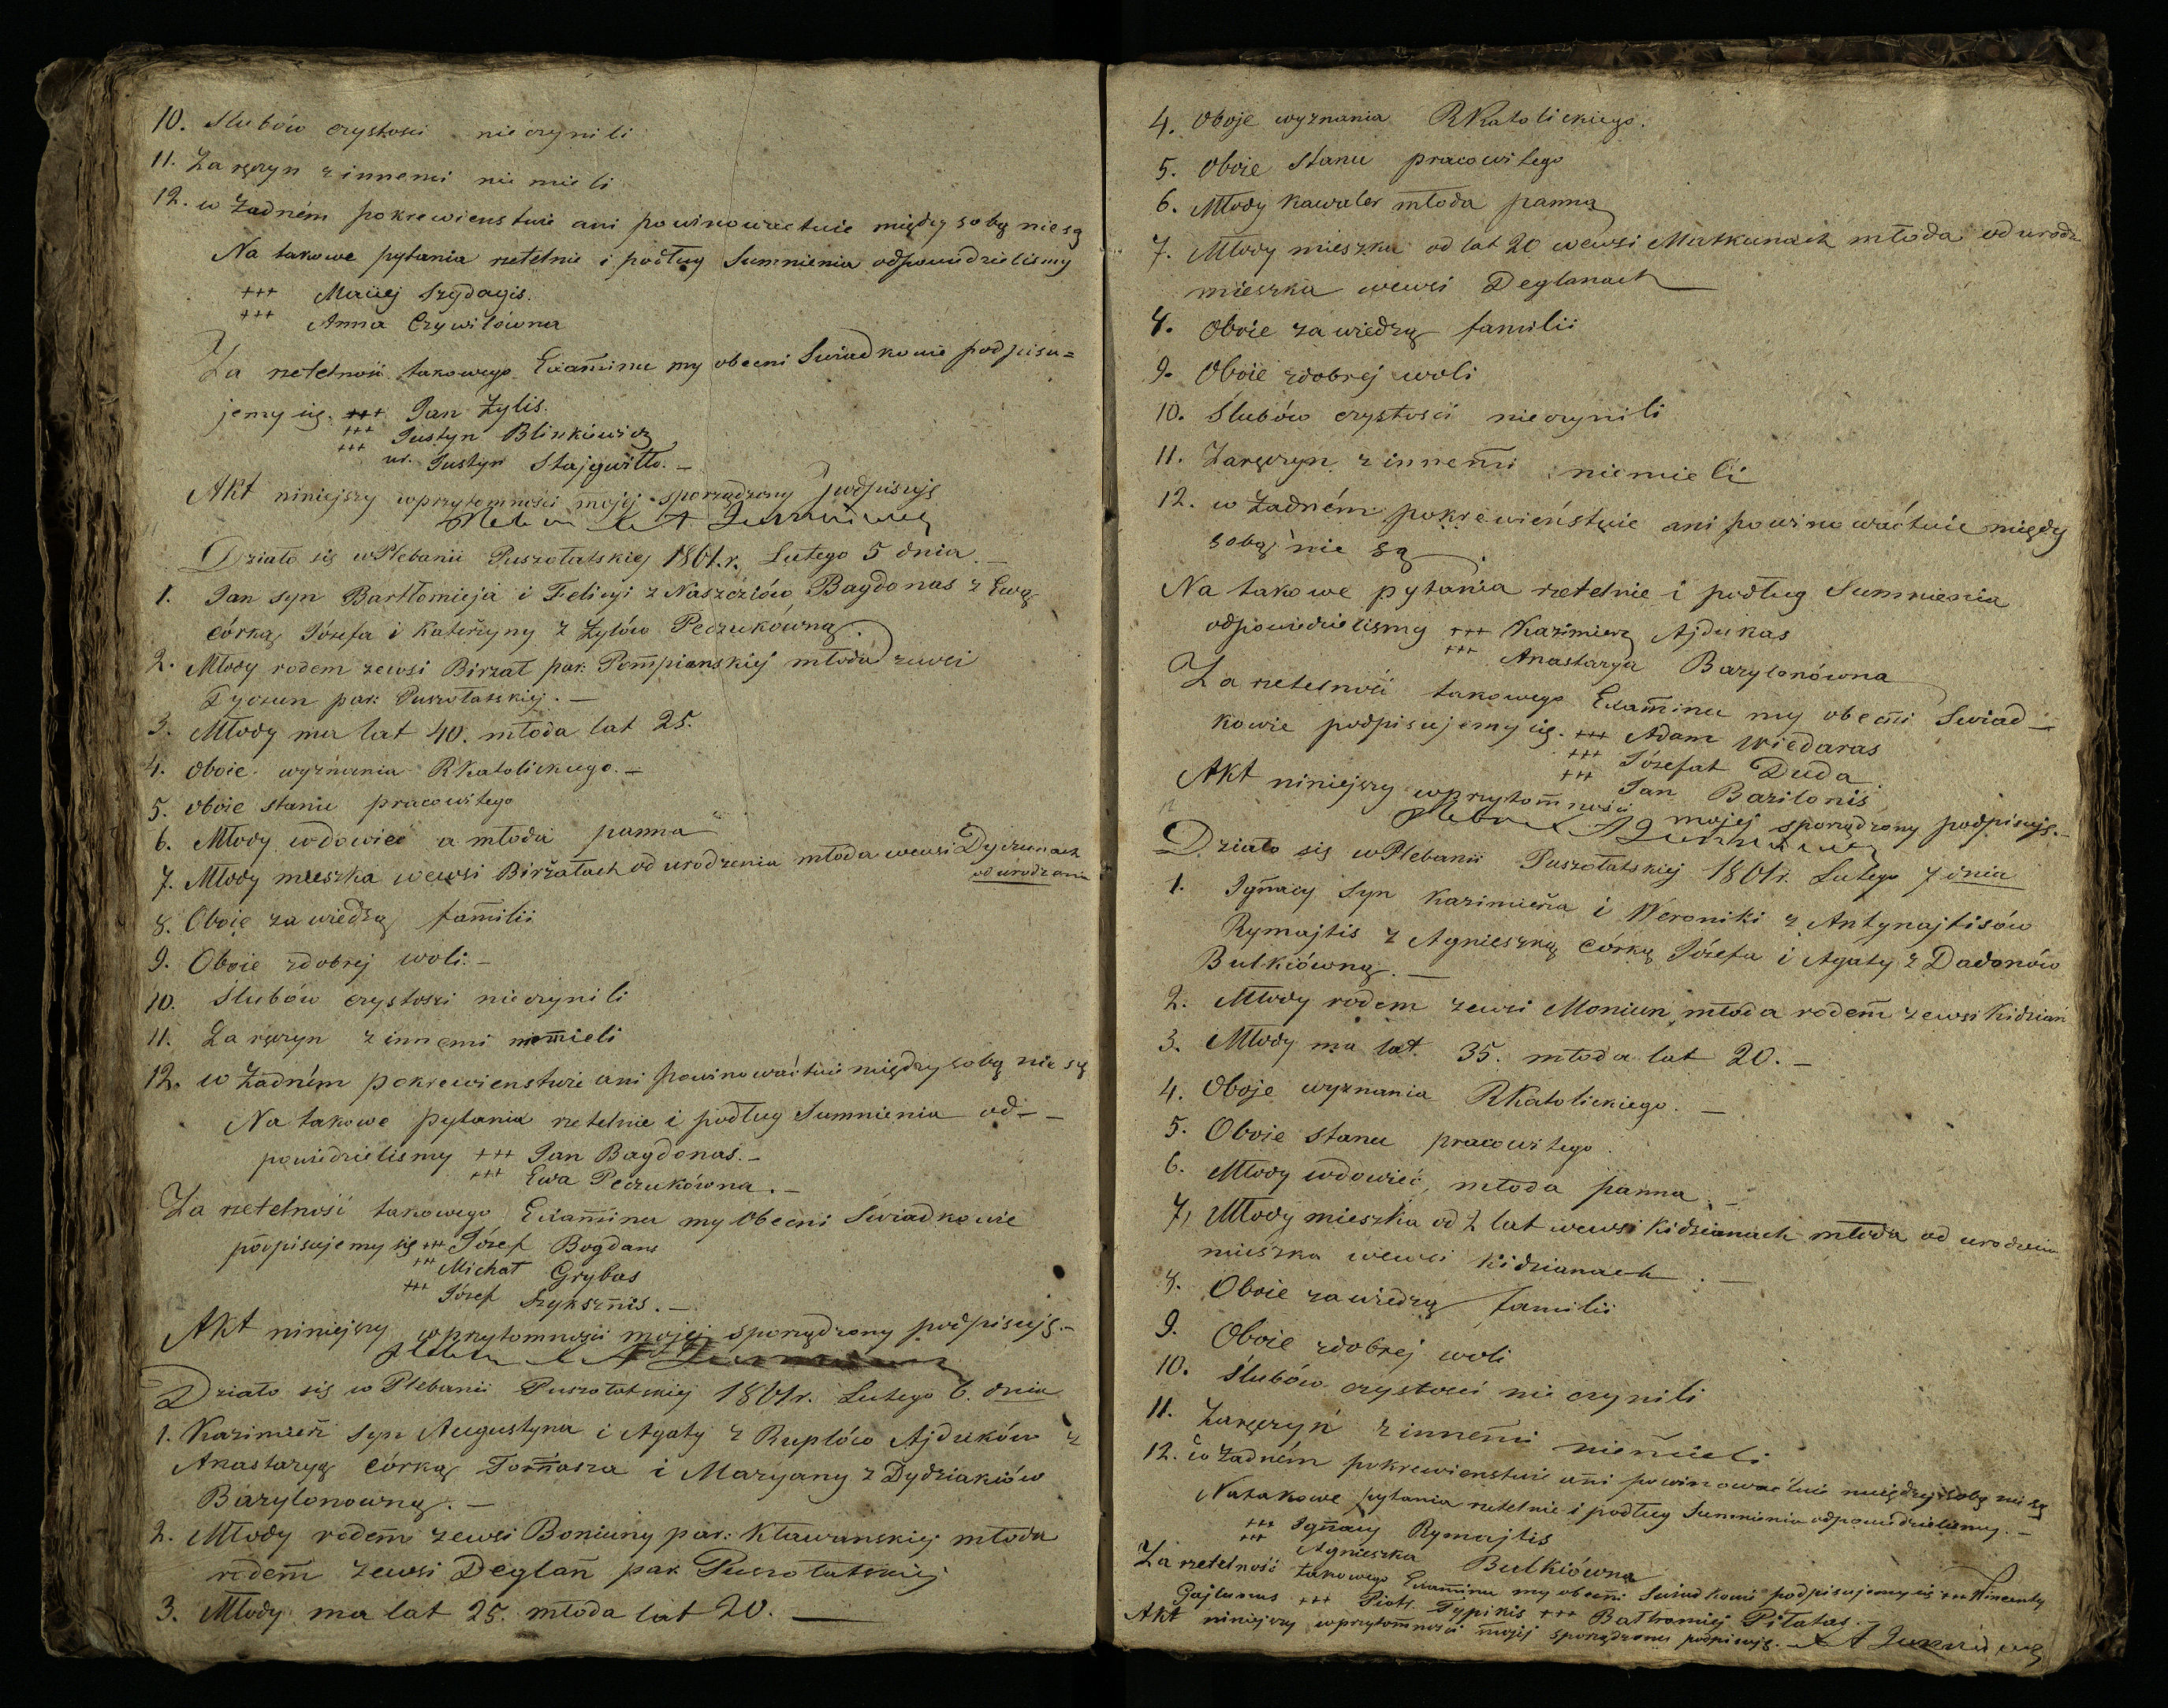 10. Slubów czystosci nie czynili
11. Zaręczyn z innemi nie mieli
12. w żadném pokrewienstwie ani powinowactwie między sobą nie są
Na takowe pytania rzetelnie i podług Sumnienia odpowiedzielismy
+++ Maciej Szydagis.
+++ Anna Czywilówna
Za rzetelność takowego Examinu my obecni Swiadkowie podpisu=
jemy się. +++ Jan Żylis.
+++ Justyn Blinkiewicz
+++ ur. Justyn Stajgwiłło. –
Akt niniejszy w przytomności mojej sporządzony podpisuję
Działo się w Plebanii Puszołatskiej 1861.r. Lutego 5 dnia. –
1. Jan syn Bartłomieja i Felicyi z Naszcziów Bagdonas z Ewą
córką Józefa i Katerzyny z Żylów Peczukówną.
2. Młody rodem ze wsi Birżał par. Pompianskiej młoda ze wsi
Dyczun par. Puszołatskiej. –
3. Młody ma lat 40. młoda lat 25.
4. Oboie wyznania RKatolickiego. –
5. oboie stanu pracowitego
6. Młody wdowiec a młoda panna
7. Młody mieszka we wsi Birżałach od urodzenia młoda we wsi Dyczunach
od urodzenia
8. Oboie za wiedzą familii
9. Oboie z dobrej woli. –
10. Slubów czystosci nie czynili
11. Zaręczyn z innemi nie mieli
12. w żadném pokrewienstwie ani powinowactwie między sobą nie są
Na takowe pytania rzetelnie i podług Sumnienia od– –
powiedzielismy +++ Jan Bagdonas. –
+++ Ewa Peczukówna. –
Za rzetelność takowego Examinu my Obecni Swiadkowie
podpisujemy się +++ Józef Bogdans
+++ Michał Grybas
+++ Józef Szyksznis. –
Akt niniejszy w przytomnosci mojej sporządzony podpisuję. –
Działo się w Plebanii Puszołatskiej 1861r. Lutego 6. dnia
1. Kazimierz syn Augustyna i Agaty z Ruplów Ajduków z
Anastazyą córką Tomasza i Maryany z Dydziaków
Bazylonowną. –
2. Młody rodem ze wsi Boniuny par. Kławanskiej młoda
rodem ze wsi Deglan par. Puszołatskiej
3. Młody ma lat 25. młoda lat 20. –
4. Oboje wyznania RKatolickiego.
5. Oboie Stanu pracowitego
6. Młody Kawaler młoda panna
7. Młody mieszka od lat 20 we wsi Matkunach młoda od urodz
mieszka we wsi Deglanach
8. Oboie za wiedzą familii
9. Oboie z dobrej woli
10. Slubów czystości nie czynili
11. Zaręczyn z innemi nie mieli
12. w żadném pokrewieństwie ani powinowactwie między
sobą nie są
Na takowe pytania rzetelnie i podług Sumnienia
odpowiedzielismy +++ Kazimierz Ajdukas
+++ Anastazya Bazylonówna
Za rzetelność takowego Examinu my obecni Swiad–
kowie podpisujemy się. +++ Adam Wiedaras
+++ Józefat Duda
+++ Jan Bazilonis
Akt niniejszy w przytomności mojej sporządzony podpisuję. –
Działo się w Plebanii Puszołatskiej 1861r. Lutego 7 dnia
1. Ignacy syn Kazimierza i Weroniki z Antynajtisów
Rymajtis z Agnieszką córką Józefa i Agaty z Dadonów
Bulkiówną. –
2. Młody rodem ze wsi Moniun młoda rodem ze wsi Kidzian
3. Młody ma lat. 35. młoda lat 20. –
4. Oboje wyznania RKatolickiego. –
5. Oboie stanu pracowitego
6. Młody wdowiec, młoda panna. –
7. Młody mieszka od 2 lat we wsi Kidzianach młoda od urodzenia
mieszka we wsi Kidzianach. –
8. Oboie za wiedzą familii
9. Oboie z dobrej woli
10. Slubów czystosci nie czynili
11. Zaręczyn z innemi nie mieli
12. w żadném pokrewienstwie ani powinowactwie między sobą nie są
Na takowe pytania rzetelnie i podług Sumnienia odpowiedzielismy. –
+++ Ignacy Rymajtis
+++ Agnieszka Bulkiówna
Za rzetelność takowego Examinu my obecni Swiadkowie podpisujemy się +++ Wincenty
Gajlunas +++ Piotr Typikis +++ Bałtromiej Piłatas. –
Akt niniejszy w przytomności mojej sporządzony podpisuję. –